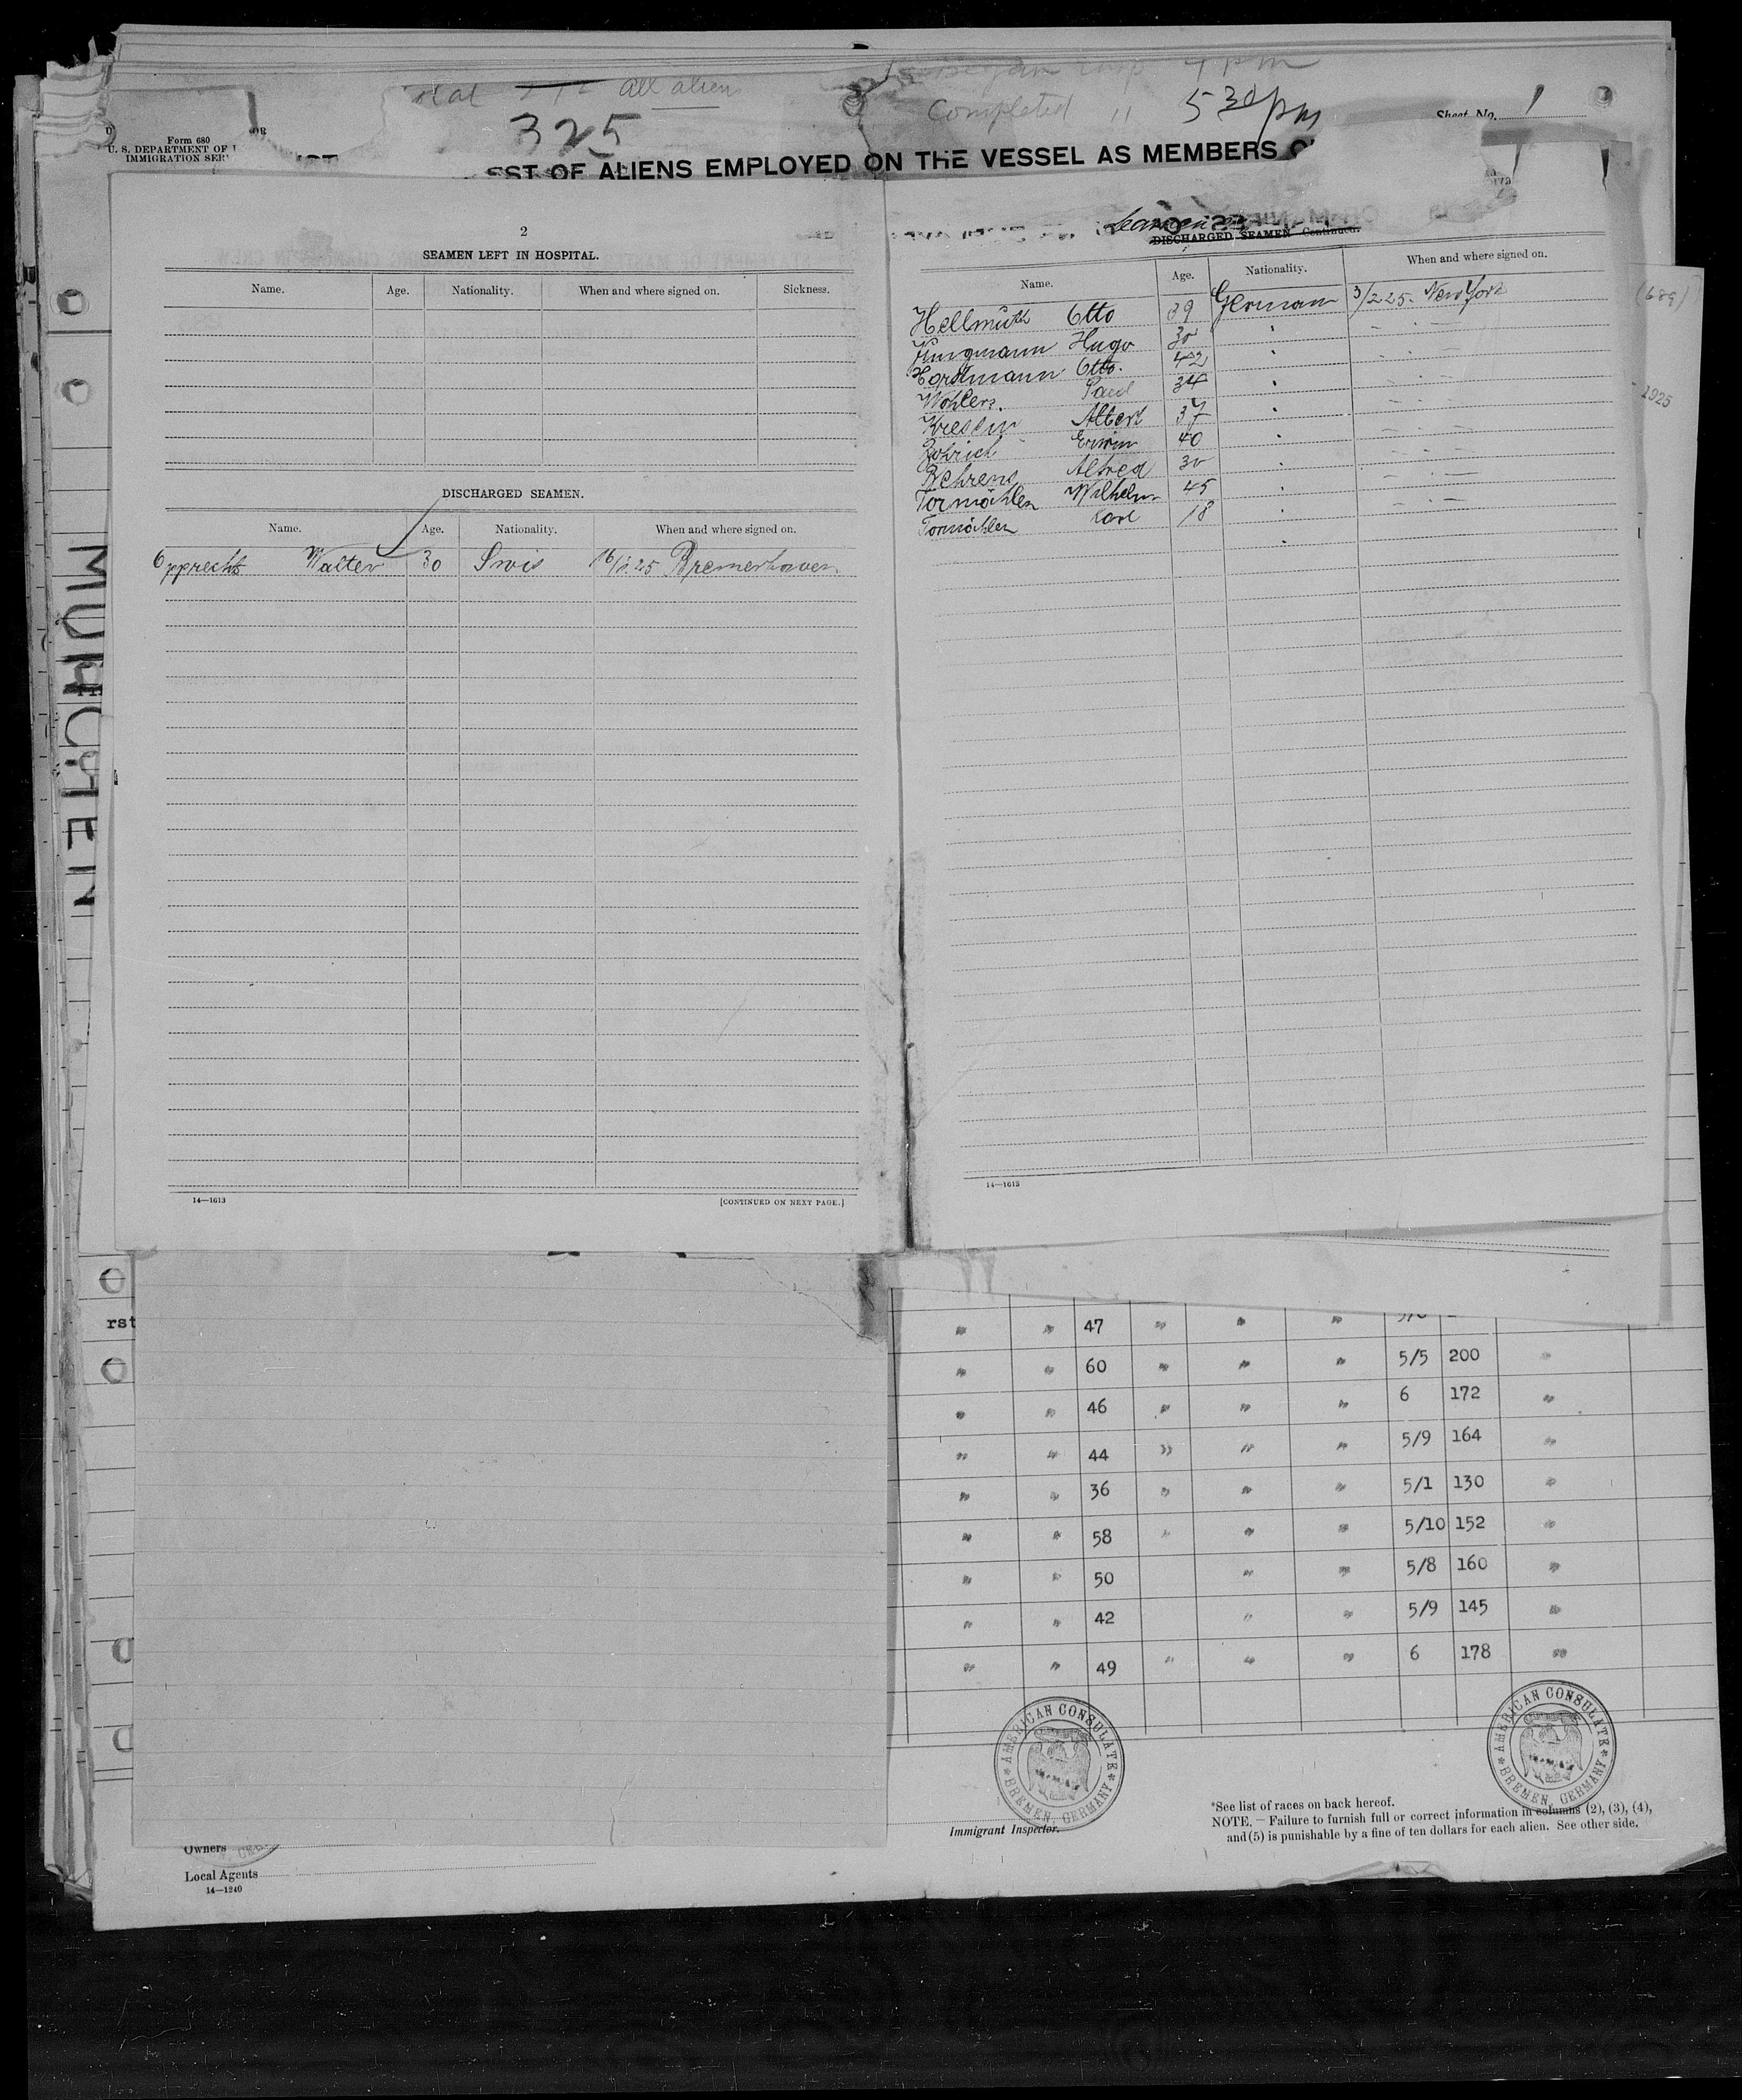 all aliens
325
Completed 11 530pm
Sheet No. 1
Form 680
U. S. DEPARTMENT OF
IMMIGRATION SER
EST OF ALIENS EMPLOYED ON THE VESSEL AS MEMBERS O
2
SEAMEN LEFT IN HOSPITAL.
Name. Age. Nationality. When and where signed on. Sickness.
DISCHARGED SEAMEN.
Name. Age. Nationality. When and where signed on.
Opprecht Walter 30 Swis 16/1.25 Bremerhaven.
14—1613
[CONTINUED ON NEXT PAGE.]
DISCHARGED SEAMEN—Continued.
Name. Age. Nationality. When and where signed on.
Hellmuth Otto 39 German 3/2 25. New York
Hugo
Horstmann Otto. 42
Wohlers. Paul 34
Albert 37
Erwin 40
Behrens Alfred
Tormöhlen Wilhelm 45
Tormöhlen Karl 18
14—1613
(689)
1925
MUNCHEN
rst
" " 47 " " "
" " 60 " " " 5/5 200 "
" " 46 " " " 6 172 "
" " 44 " " " 5/9 164 "
" " 36 " " " 5/1 130 "
" " 58 " " " 5/10 152 "
" " 50 " " 5/8 160 "
" " 42 " " 5/9 145 "
" " 49 " " " 6 178 "
AMERICAN CONSULATE
BREMEN, GERMANY
AMERICAN CONSULATE
BREMEN, GERMANY
Immigrant Inspector.
*See list of races on back hereof.
NOTE.—Failure to furnish full or correct information in columns (2), (3), (4),
and (5) is punishable by a fine of ten dollars for each alien. See other side.
Owners
Local Agents
14—1240